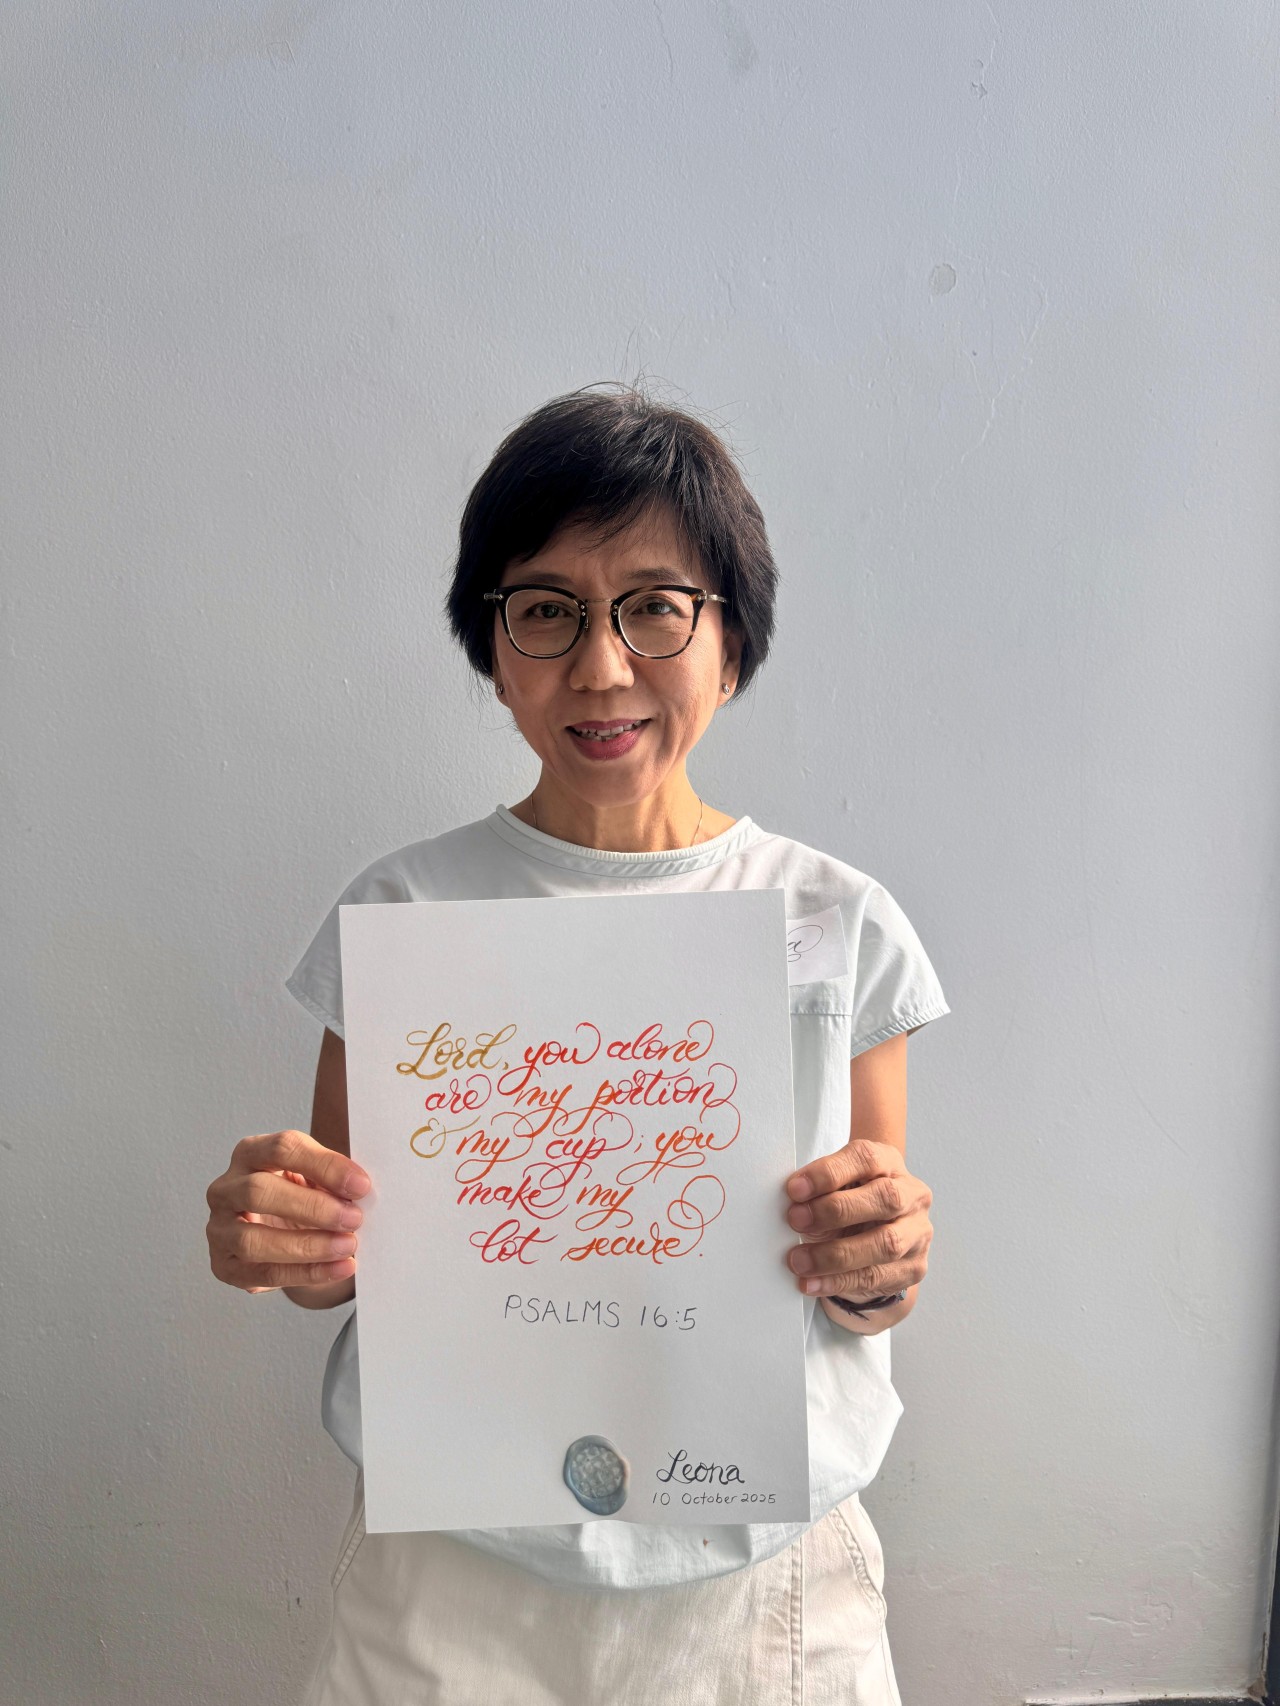 Lord, you alone
are my portion
& my cup; you
make my
lot secure.
PSALMS 16:5
Leona
10 October 2025